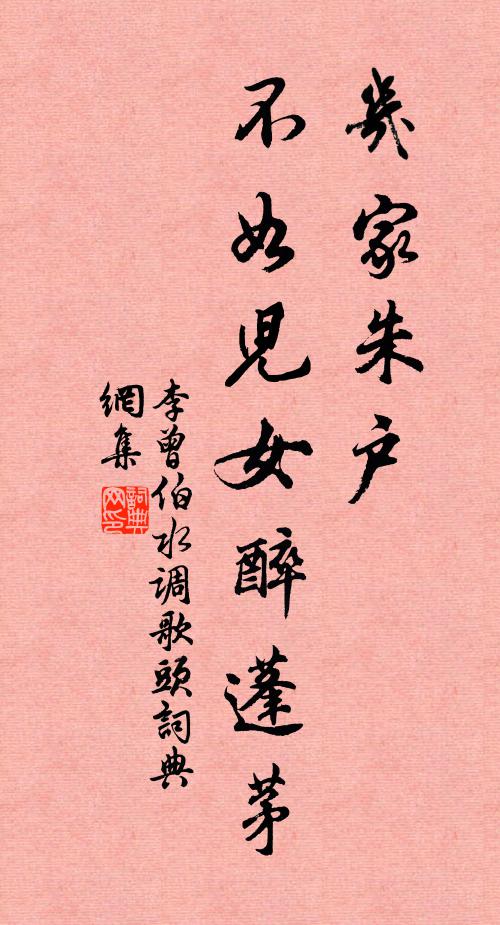 幾家朱户
不如児女醉蓬茅
李曾伯水调歌頭詞典
網集
詞典網印